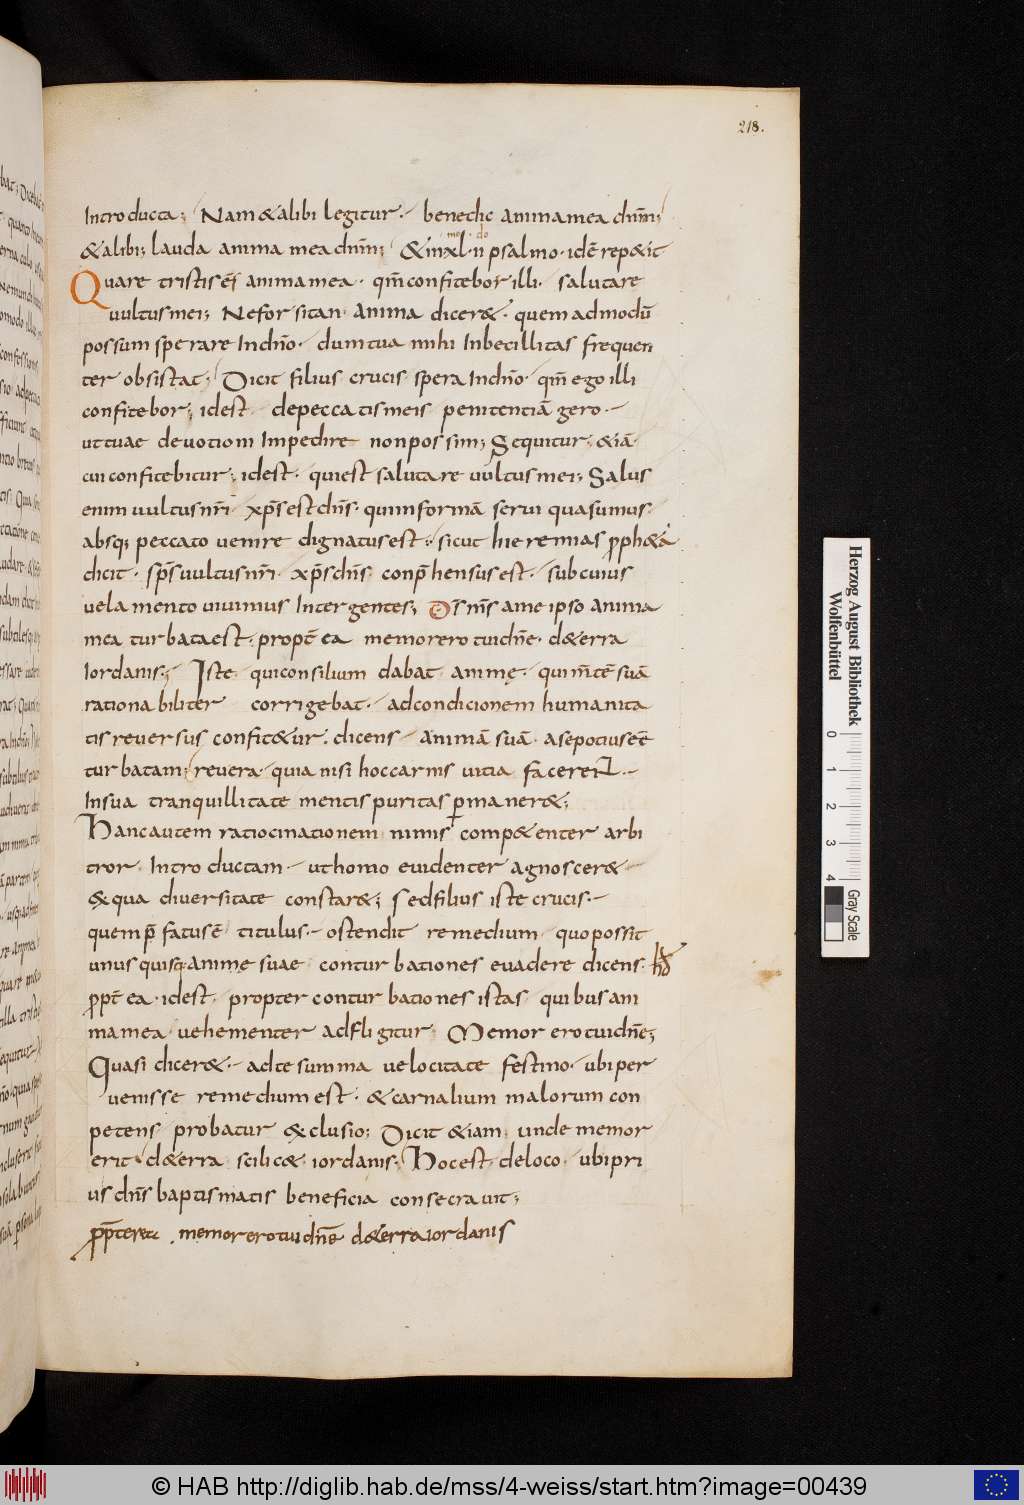 218.
Introducta; Nam & alibi legitur· benedic anima mea dnm̄;
& alibi; lauda anima mea dnm̄; & in xl·ii psalmo· idē rep&it
Quare tristis eſ̄ anima mea· qm̄ confitebor illi· salutare
vultus mei; Ne forsitan· anima dicer&· quem admodū
possum sperare In dn̄o· dum tua mihi Inbecillitas frequen
ter obsistat; Dicit filius crucis spera In dn̄o· qm̄ ego illi
confitebor; idest· de peccatis meis penitentiā gero·
ut tuae devotioni Impedire non possim; Sequitur· &iā·
cui confitebitur; idest· qui est salutare vultus mei; Salus
enim vultus nr̄i· xp̄s est dn̄s· qui in formā servi quasumus·
absq; peccato venire dignatus est· sicut hieremias pph&a
dicit· sp̄s vultus nr̄i· xp̄s dn̄s· conp̄hensus est· sub cuius
velamento vivimus Inter gentes; Ds̄ ms̄ a me ipso anima
mea turbata est· propt̄ ea memor ero tui dn̄e· d& erra
Iordanis; Iste· qui consilium dabat animę· qui m̄tē suā
rationabiliter corrigebat· ad condicionem humanita
tis reversus confit&ur· dicens· animā suā· a se potius eē
turbatam; revera· quia nisi hoc carnis vitia facerent·
In sua tranquillitate mentis puritas pmaner&;
Hanc autem ratiocinationem nimis comp&enter arbi
tror Introductam· ut homo evidenter agnoscer&·
& qua diversitate constar&; sed filius iste crucis·
quem p̄fatus ē titulus· ostendit remedium quo possit
unusquisq· animę suae conturbationes evadere dicens· hđ
ppt̄ ea· idest· propter conturbationes istas quibus ani
ma mea vehementer adfligitur Memor ero tui dn̄e;
Quasi dicer&· ad te summa velocitate festino· ubi per
venisse remedium est· & carnalium malorum con
petens probatur &clusio; Dicit &iam unde memor
erit· d& erra scilic& iordanis; Hoc est· de loco ubi pri
us dn̄s baptismatis beneficia consecravit;
memor ero tui dn̄e d& erra iordanis
Herzog August Bibliothek
Wolfenbüttel
0 1 2 3 4
Gray Scale
© HAB http://diglib.hab.de/mss/4-weiss/start.htm?image=00439